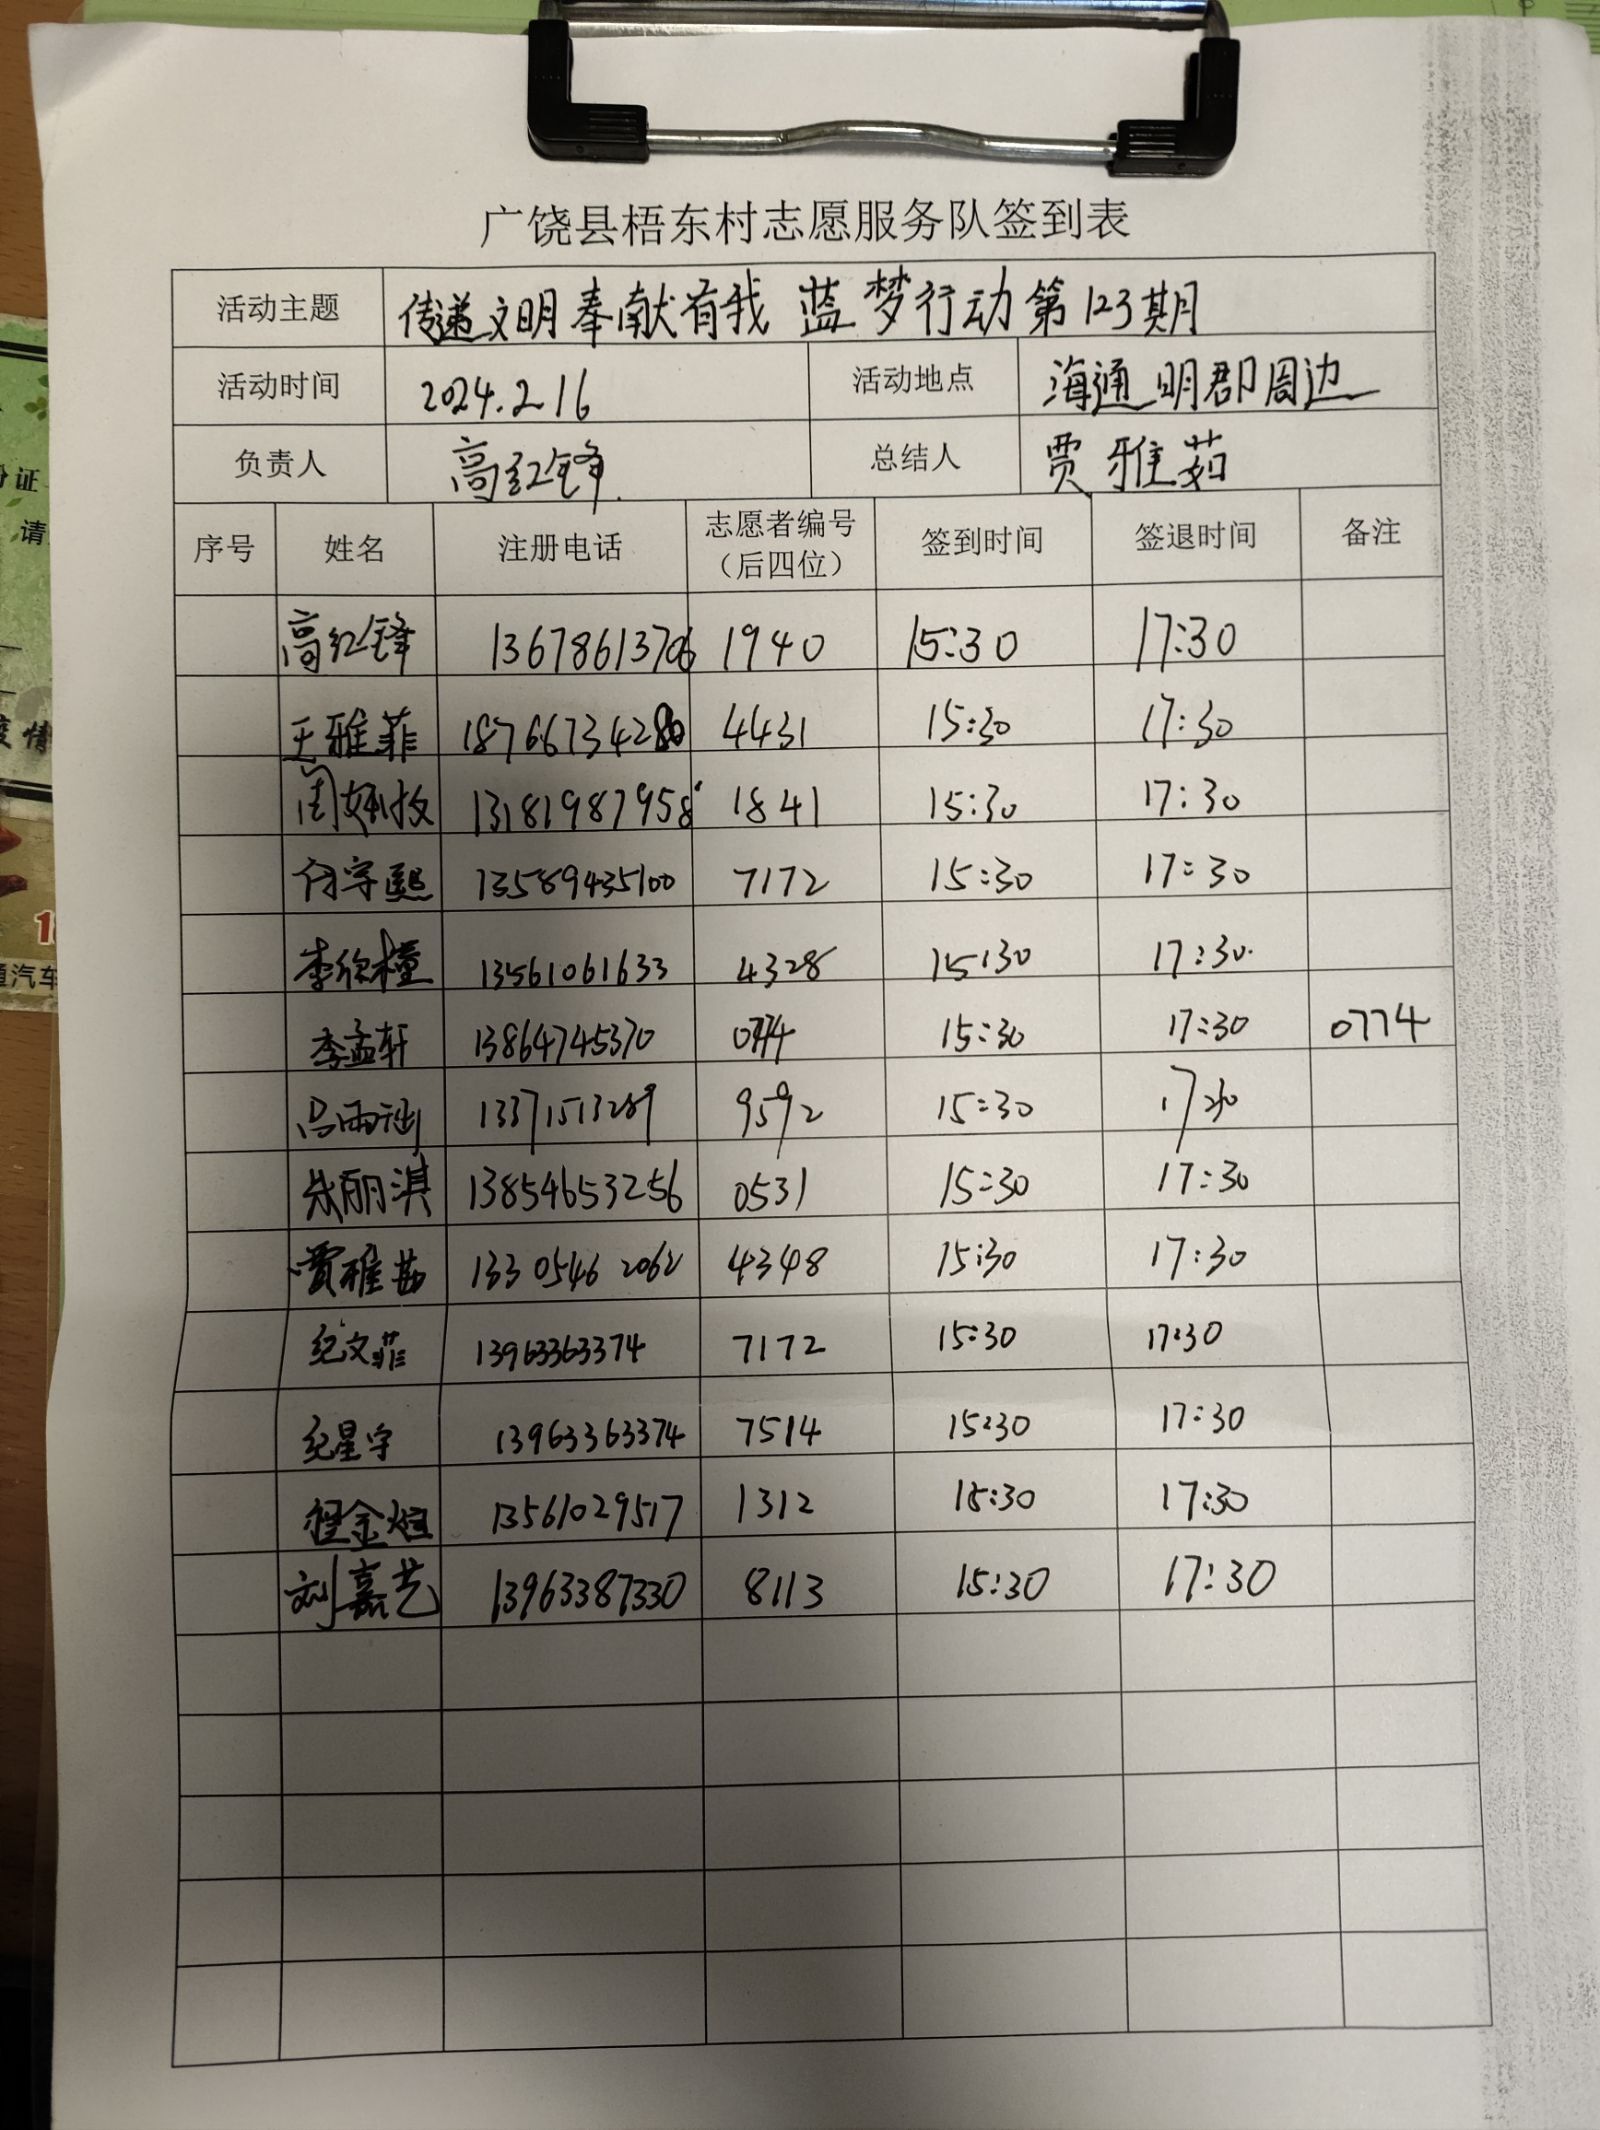 广饶县梧东村志愿服务队签到表
活动主题 传递文明奉献有我 蓝梦行动第123期
活动时间 2024.2.16 活动地点 海通明郡周边
负责人 高红锋 总结人 贾雅茹
序号 姓名 注册电话 志愿者编号（后四位） 签到时间 签退时间 备注
高红锋 13678613706 1940 15:30 17:30
王雅菲 18766734280 4431 15:30 17:30
周 13181987958 1841 15:30 17:30
任宇熙 13589435100 7172 15:30 17:30
李欣橦 13561061633 4328 15:30 17:30
李孟轩 13864745370 15:30 17:30 0774
吕雨 13371513289 9592 15:30
丽淇 13854653256 0531 15:30 17:30
贾雅茹 13305462062 4348 15:30 17:30
纪文菲 13963363374 7172 15:30 17:30
纪星宇 13963363374 7514 15:30 17:30
程金烜 13561029517 1312 15:30 17:30
刘嘉艺 13963387330 8113 15:30 17:30
份证
请
疫情
通汽车